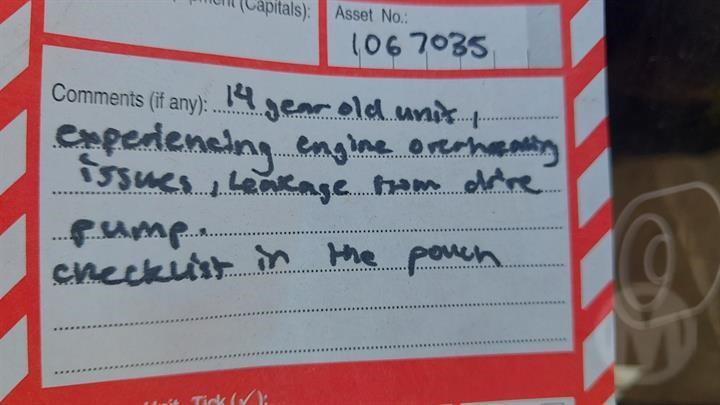 (Capitals):
Asset No.:
1067035
Comments (if any): 14 year old unit,
experiencing engine overheating
issues, Leakage from drive
pump.
checklist in the pouch
Tick (✓):